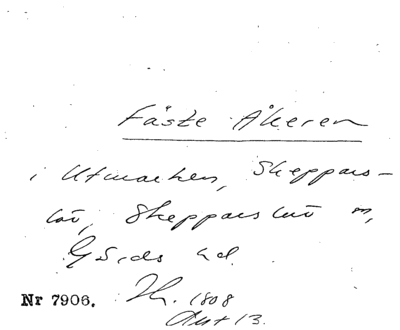 Fäste Åkeren
i Utmarken, Skeppars-
löv, Skepparslöv sn,
Gärds hd.
Nr 7906. 1808
Akt 13.